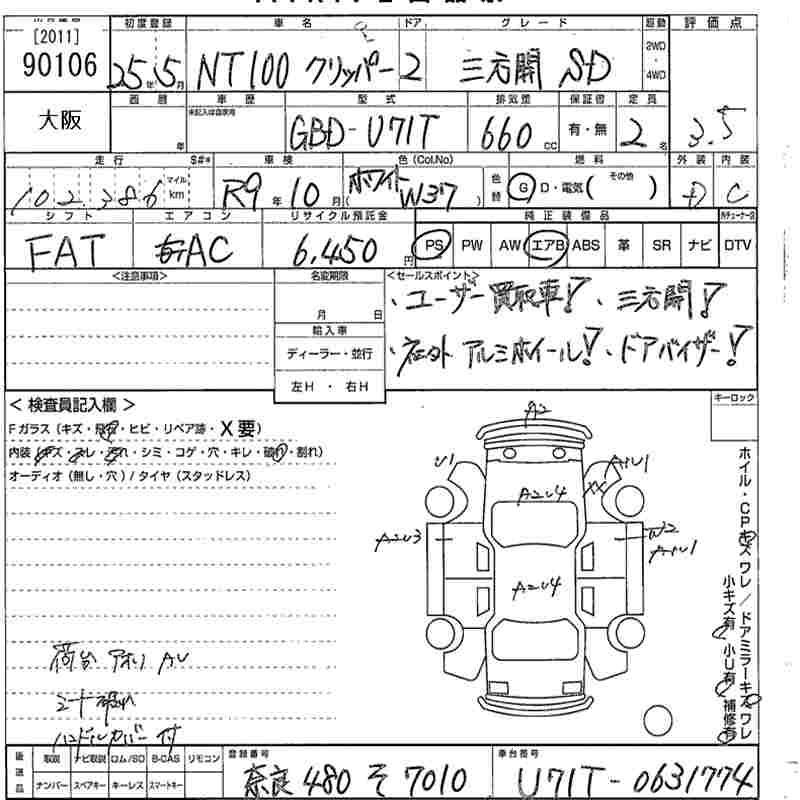 [2011]
90106
初度登録 車名 ドア グレード 駆動 評価点
25年5月 NT100 クリッパー 2 三方開 SD 2WD・4WD
西暦 車歴 型式 排気量 保証書 定員
未記入は自家用
大阪 年 GBD-U71T 660cc 有・無 2名 3.5
走行 S#* 車検 色(Col.No) 燃料 外装 内装
102,386 マイル km R9年10月 ホワイト (W37) 色替 G D・電気( その他 ) D C
シフト エアコン リサイクル預託金 純正装備品
FAT AC 6,450円 PS PW AW エアB ABS 革 SR ナビ DTV
<注意事項> 名変期限 <セールスポイント>
月 日
・ユーザー買取車!・三方開!
輸入車
ディーラー・並行
・社外アルミホイール!・ドアバイザー!
左H・右H
<検査員記入欄> キーロック
Fガラス(キズ・飛石・ヒビ・リペア跡・X要)
内装(キズ・スレ・汚れ・シミ・コゲ・穴・キレ・破れ・割れ)
オーディオ(無し・穴)/タイヤ(スタッドレス)
A2
U1 AU1
A2U4 XX
A2U3 W2
AU1
A2U4
ホイル・CPキズワレ/ドアミラーキズワレ
小キズ有 小U有 補修有
荷台 アオリ AU
シート破れ
ハンドルカバー付
後送品 取説 ナビ取説 ロム/SD B-CAS リモコン 登録番号 車台番号
ナンバー スペアキー キーレス スマートキー 奈良 480 そ 7010 U71T-0631774